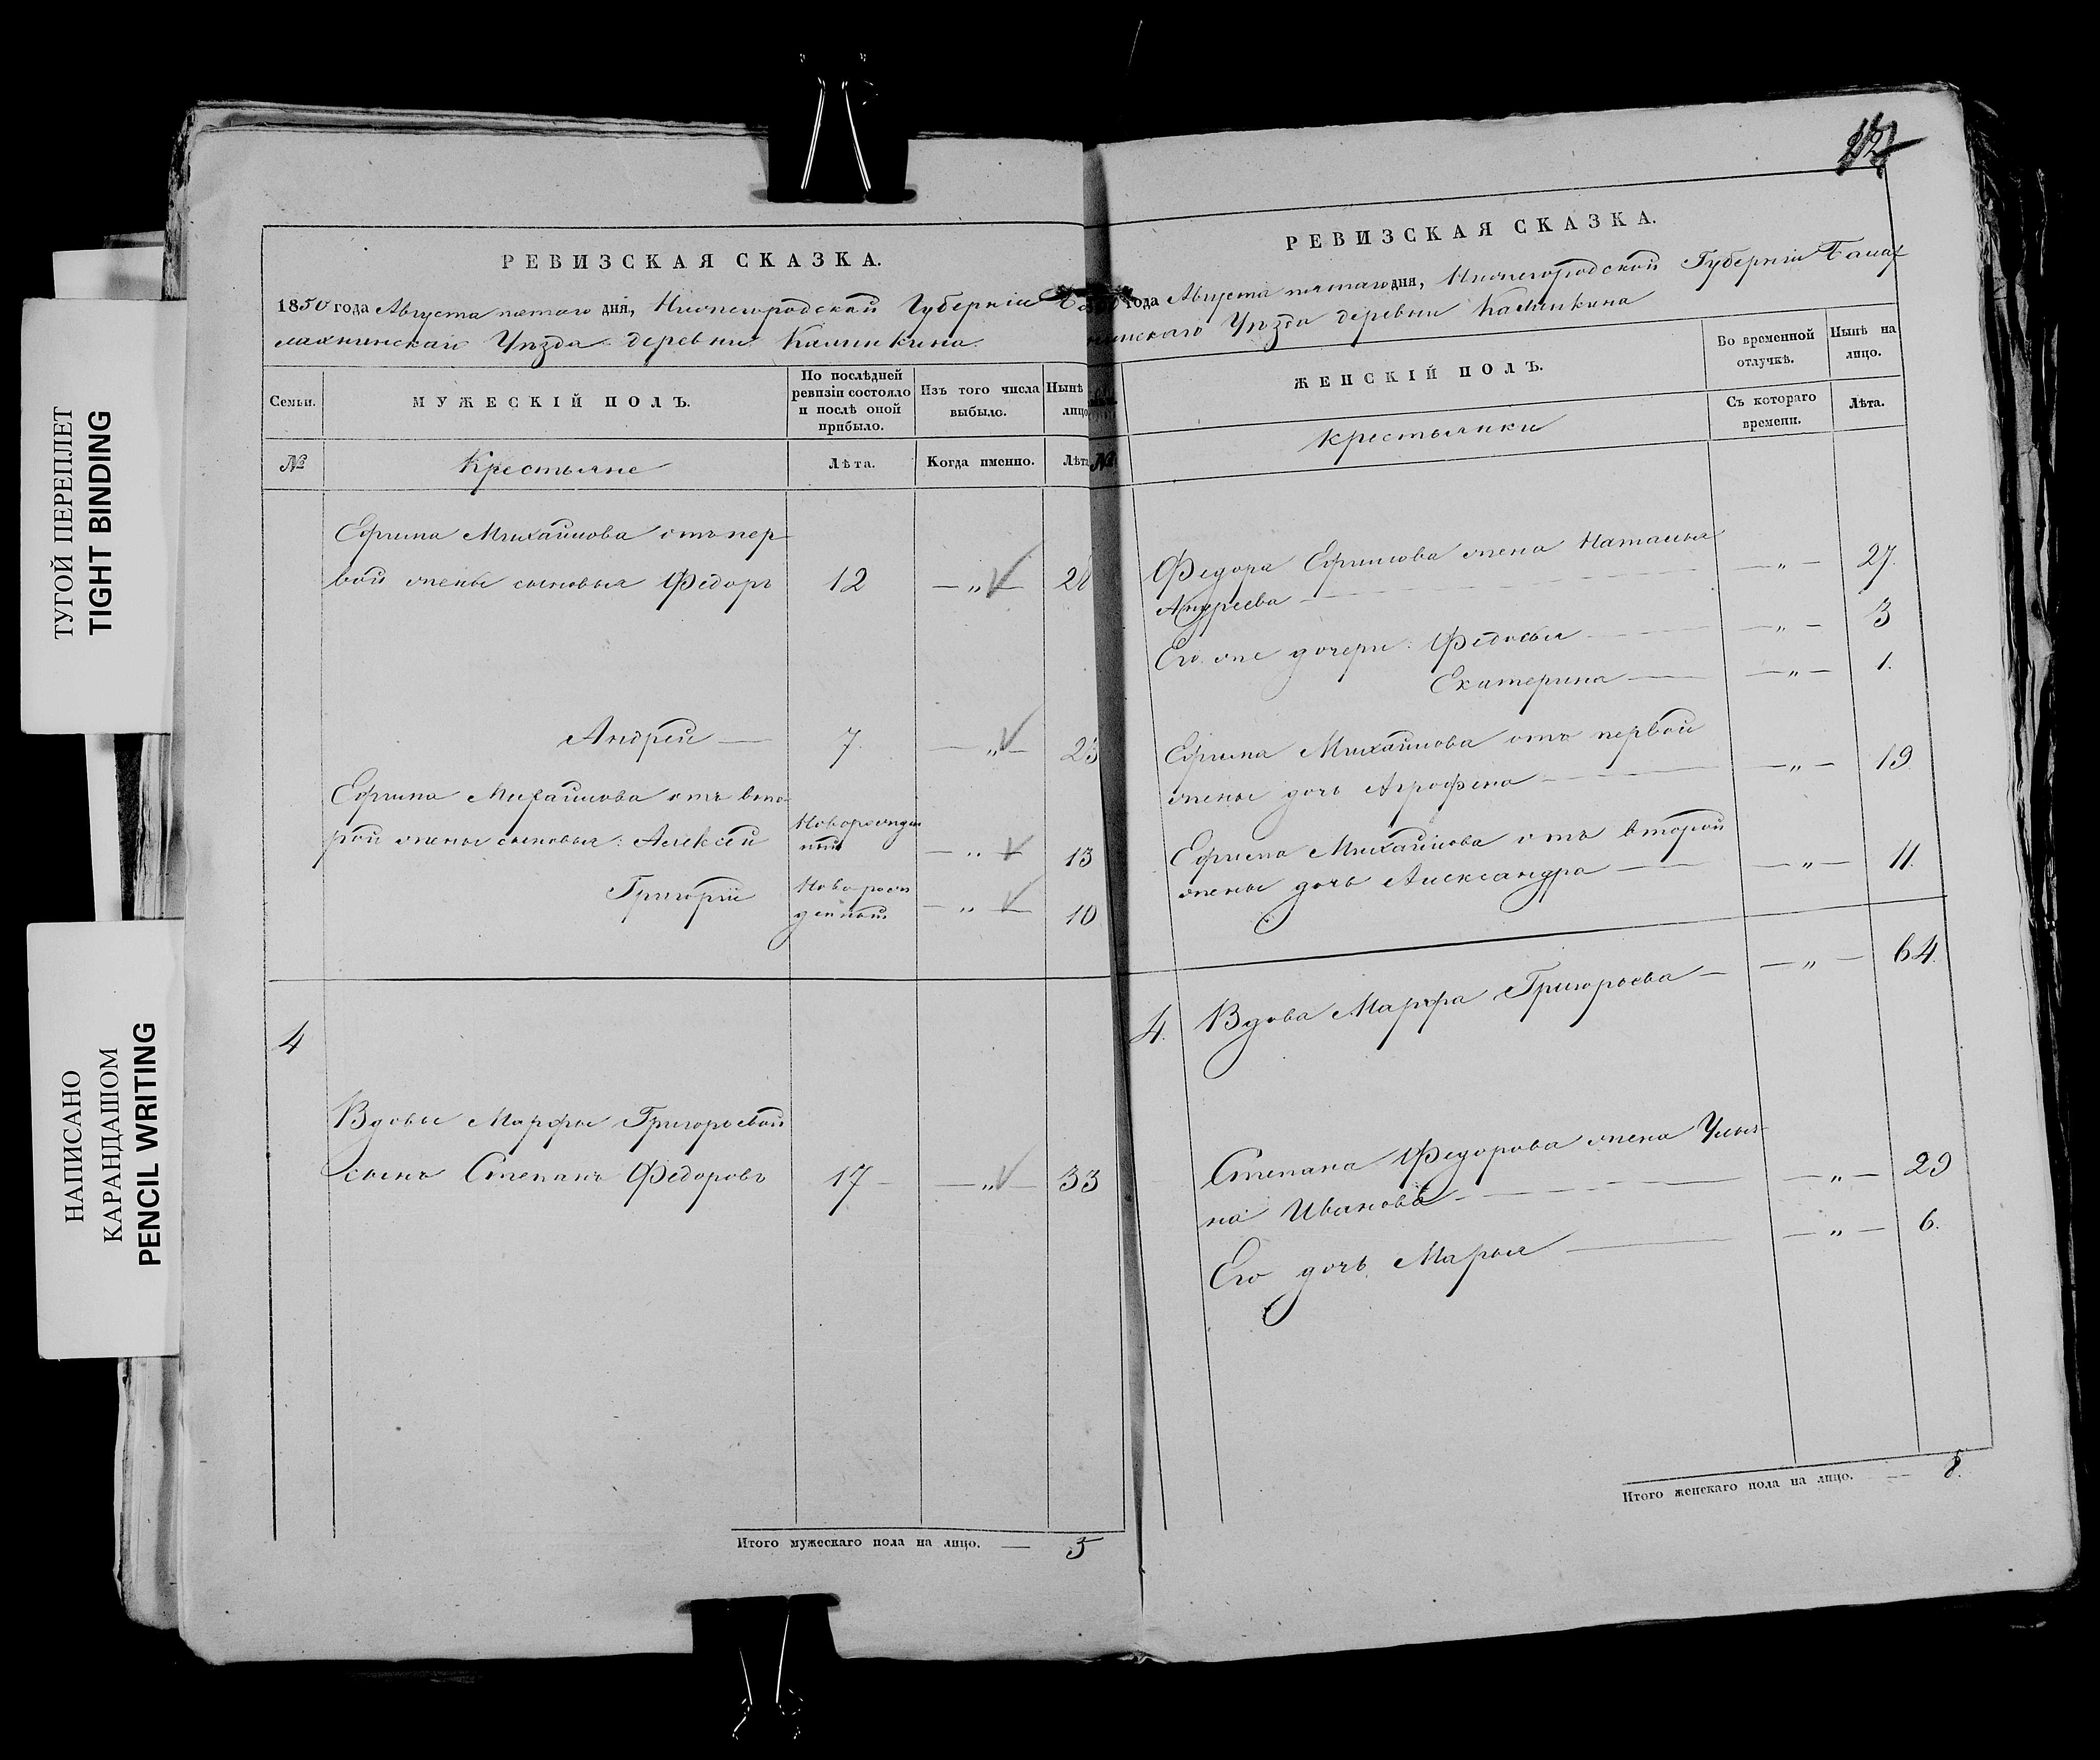 ТУГОЙ ПЕРЕПЛЕТ
TIGHT BINDING
НАПИСАНО
КАРАНДАШОМ
PENCIL WRITING
РЕВИЗСКАЯ СКАЗКА.
1850 года Августа пятаго дня, Нижегородской Губерніи Ба
лахнинскаго Уѣзда деревни Калинкина.
Семьи.
МУЖЕСКІЙ ПОЛЪ.
По послѣдней
ревизіи состояло
и послѣ оной
прибыло.
Изъ того числа
выбыло.
Нынѣ
лицо
№
Крестьяне
Лѣта.
Когда именно.
Лѣта
Ефима Михайлова отъ пер
вой жены сыновья Федоръ 12 — „ — 28
Андрей — 7. — „ — 23
Ефима Михайлова отъ вто
рой жены сыновья: Алексѣй Новорожден
ный — „ — 13
Григорій Новорож
денный — „ — 10
4
Вдовы Марфы Григорьевой
сынъ Степанъ Федоровъ 17 — — „ — 33
Итого мужескаго пола на лицо. — 5
РЕВИЗСКАЯ СКАЗКА.
года Августа пятаго дня, Нижегородской Губерніи Балах
нинскаго Уѣзда деревни Калинкина
ЖЕНСКІЙ ПОЛЪ.
Во временной
отлучкѣ.
Нынѣ на
лицо.
Съ котораго
времени.
Лѣта.
№
Крестьянки
Федора Ефимова жена Наталья
Андреева — — „ — 27.
Его же дочери: Федосья — — „ — 3
Екатерина — — „ — 1.
Ефима Михайлова отъ первой
жены дочь Агрофена — — „ — 19
Ефима Михайлова отъ второй
жены дочь Александра — — „ — 11.
4. Вдова Марфа Григорьева — — „ — 64.
Степана Федорова жена Улья-
на Иванова — — „ — 29
Его дочь Марья — — „ — 6.
Итого женскаго пола на лицо. — 8.